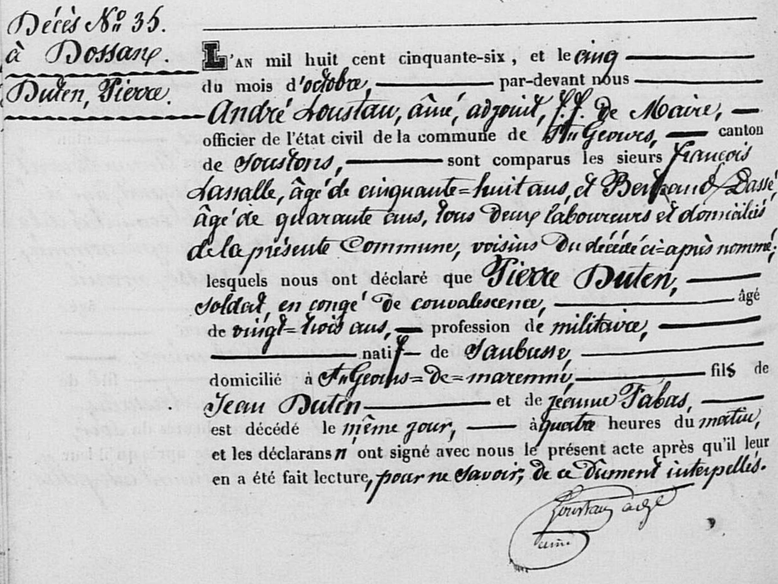 Décès No 35.
à Dossang.
Duten, Pierre.
L'AN mil huit cent cinquante-six, et le cinq
du mois d'octobre, par-devant nous
André Loustau, aîné, adjoint, f.f. de Maire,
officier de l'état civil de la commune de St Geours, canton
de Soustons, sont comparus les sieurs François
Lassalle, âgé de cinquante=huit ans, et Bertrand Dassé,
âgé de quarante ans, tous deux laboureurs et domiciliés
de la présente Commune, voisins du décédé ci-après nommé;
lesquels nous ont déclaré que Pierre Duten,
soldat, en congé de convalescence, âgé
de vingt=trois ans, profession de militaire,
natif de Saubusse,
domicilié à St Geours=de=maremne, fils de
Jean Duten et de jeanne Tabas,
est décédé le même jour, à quatre heures du matin,
et les déclarans n'ont signé avec nous le présent acte après qu'il leur
en a été fait lecture, pour ne savoir, de ce dument interpellés.
Loustau adjt
ainé